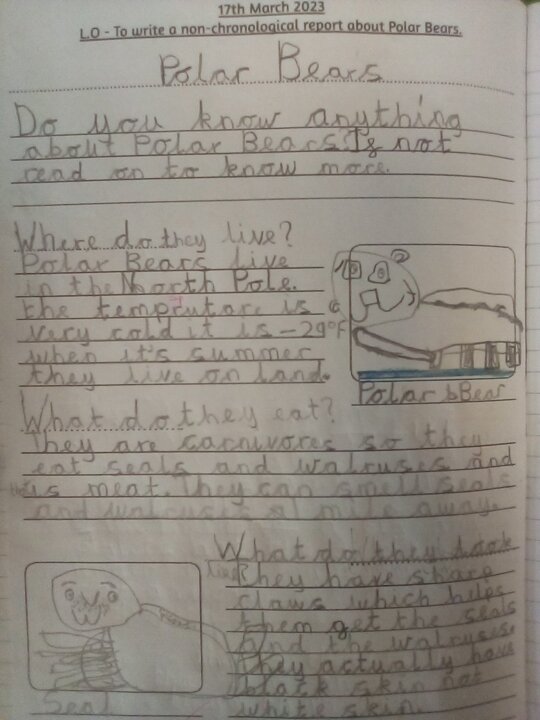 17th March 2023
L.O - To write a non-chronological report about Polar Bears.
Polar Bears
Do you know anything
about Polar Bears If not
read on to know more.
Where do they live?
Polar Bears live
in the North Pole.
the temprutare is
very cold it is -29°F
when it's summer
they live on land.
Polar bBear
What do they eat?
They are carnivores so they
eat seals and walruses and
is meat. They can smell seals
and a mile away.
What do they look
like?
They have sharp
claws which helps
them get the seals
and the walruses.
They actually have
black skin not
white skin.
Seal